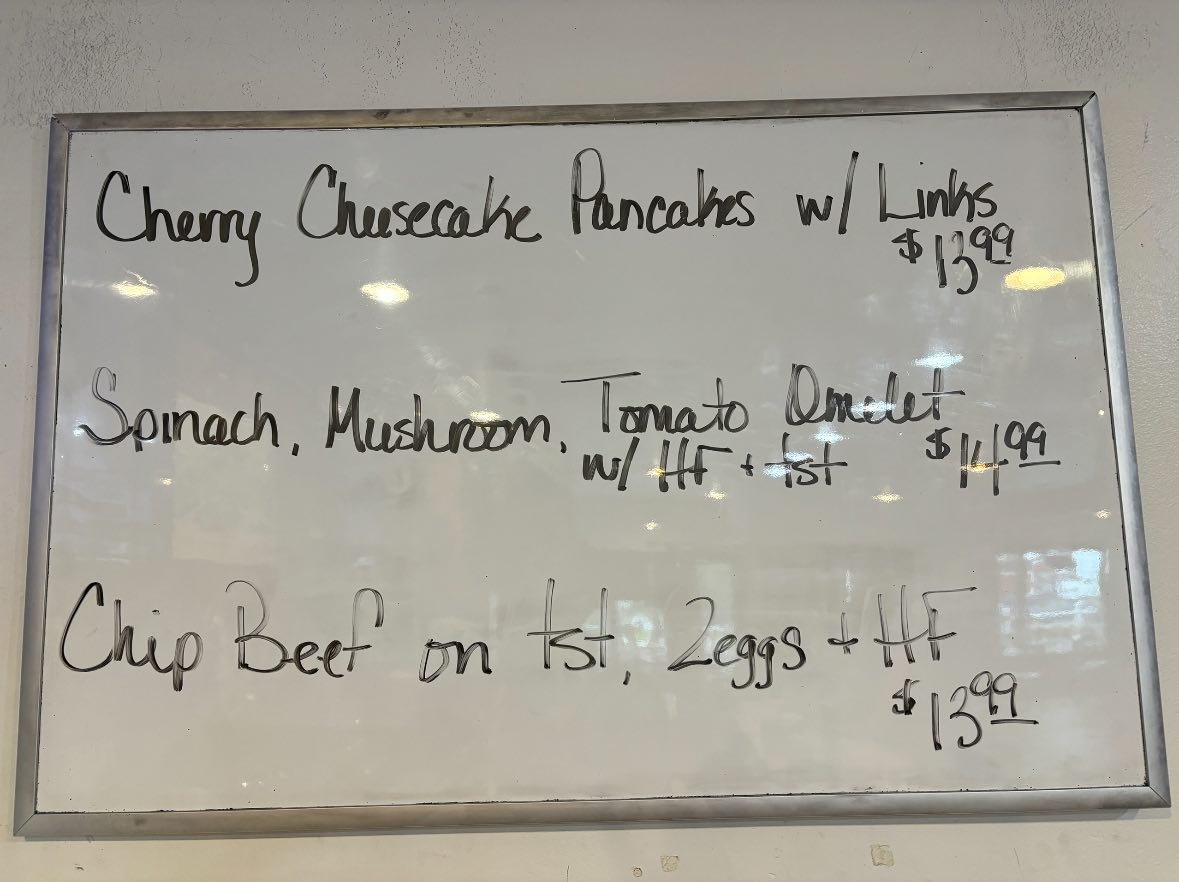 Cherry Cheesecake Pancakes w/ Links
$13.99
Spinach, Mushroom, Tomato Omelet
w/ HF + tst $14.99
Chip Beef on tst, 2eggs + HF
$13.99